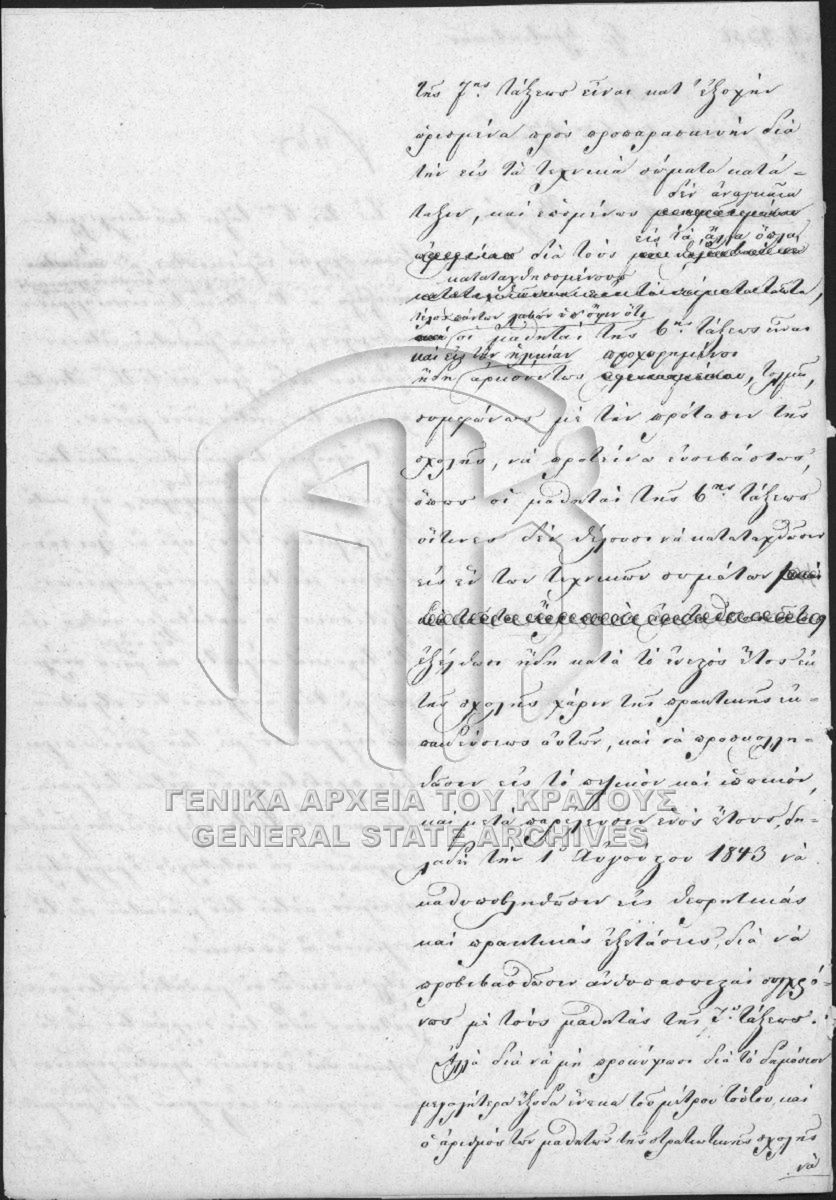 τῆς 7ης τάξεως εἶναι κατ' ἐξοχὴν
ὡρισμένα πρὸς προπαρασκευὴν διὰ
τὴν εἰς τὰ τεχνικὰ σώματα κατά-
δὲν ἀναγκαῖα
ταξιν, καὶ ἑπομένως
εἰς τὰ ἄλλα ὅπλα
διὰ τοὺς
καταταχθησομένους
λαβὼν ὑπ' ὄψιν ὅτι
οἱ μαθηταὶ τῆς 6ης τάξεως εἶναι
καὶ εἰς τὴν ἡλικίαν προχωρημένοι
ἤδη ἀρκούντως , τολμῶ,
συμφώνως μὲ τὴν πρότασιν τῆς
σχολῆς, νὰ προτείνω εὐσεβάστως,
ὅπως οἱ μαθηταὶ τῆς 6ης τάξεως
οἵτινες δὲν θέλουσι νὰ καταταχθῶσιν
εἰς ἓν τῶν τεχνικῶν σωμάτων
ἐξέλθωσι ἤδη κατὰ τὸ ἐνεστὸς ἔτος ἐκ
τῆς σχολῆς χάριν τῆς πρακτικῆς ἐκ-
παιδεύσεως αὐτῶν, καὶ νὰ προσκολλη-
θῶσιν εἰς τὸ πεζικὸν καὶ ἱππικόν,
καὶ μετὰ παρέλευσιν ἑνὸς ἔτους, δη-
λαδὴ τὴν 1 Αὐγούστου 1843 νὰ
καθυποβληθῶσιν εἰς θεωρητικὰς
καὶ πρακτικὰς ἐξετάσεις, διὰ νὰ
προβιβασθῶσιν ἀνθυπασπισταὶ συγχρό-
νως μὲ τοὺς μαθητὰς τῆς 7ης τάξεως.
Ἀλλὰ διὰ νὰ μὴ προκύψωσι διὰ τὸ δημόσιον
μεγαλήτερα ἔξοδα ἕνεκα τοῦ μέτρου τούτου, καὶ
ὁ ἀριθμὸς τῶν μαθητῶν τῆς στρατιωτικῆς σχολῆς
νὰ
ΓΕΝΙΚΑ ΑΡΧΕΙΑ ΤΟΥ ΚΡΑΤΟΥΣ
GENERAL STATE ARCHIVES